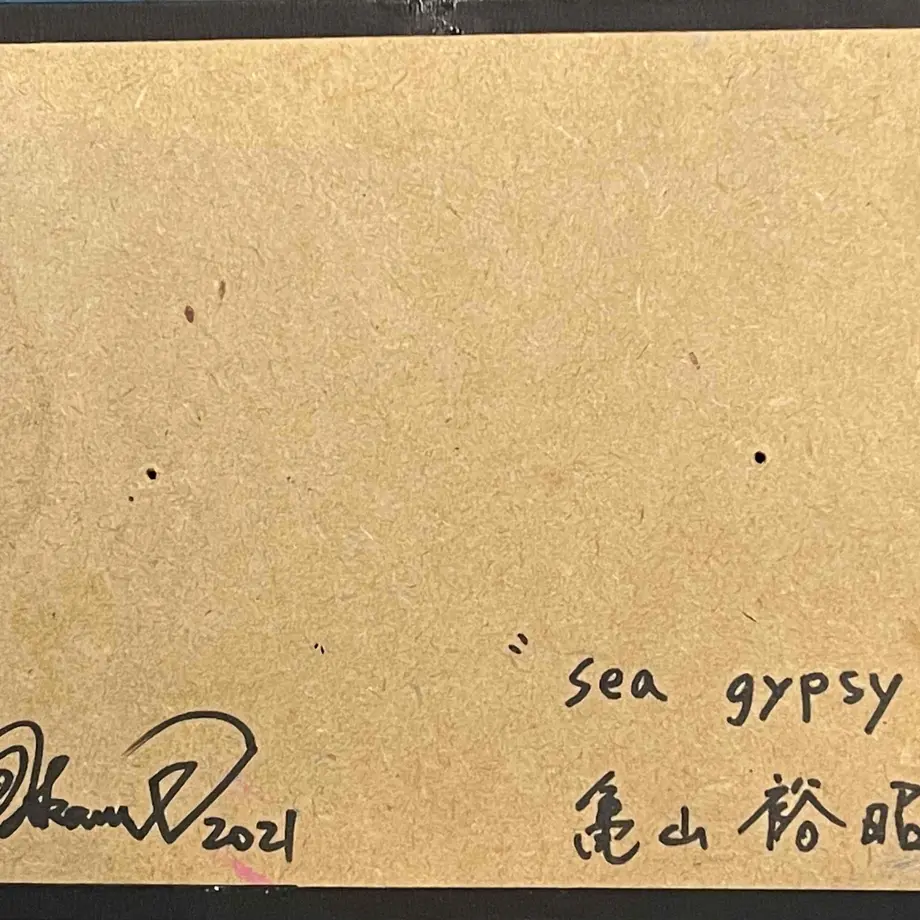 " sea gypsy
2021
亀山 裕昭